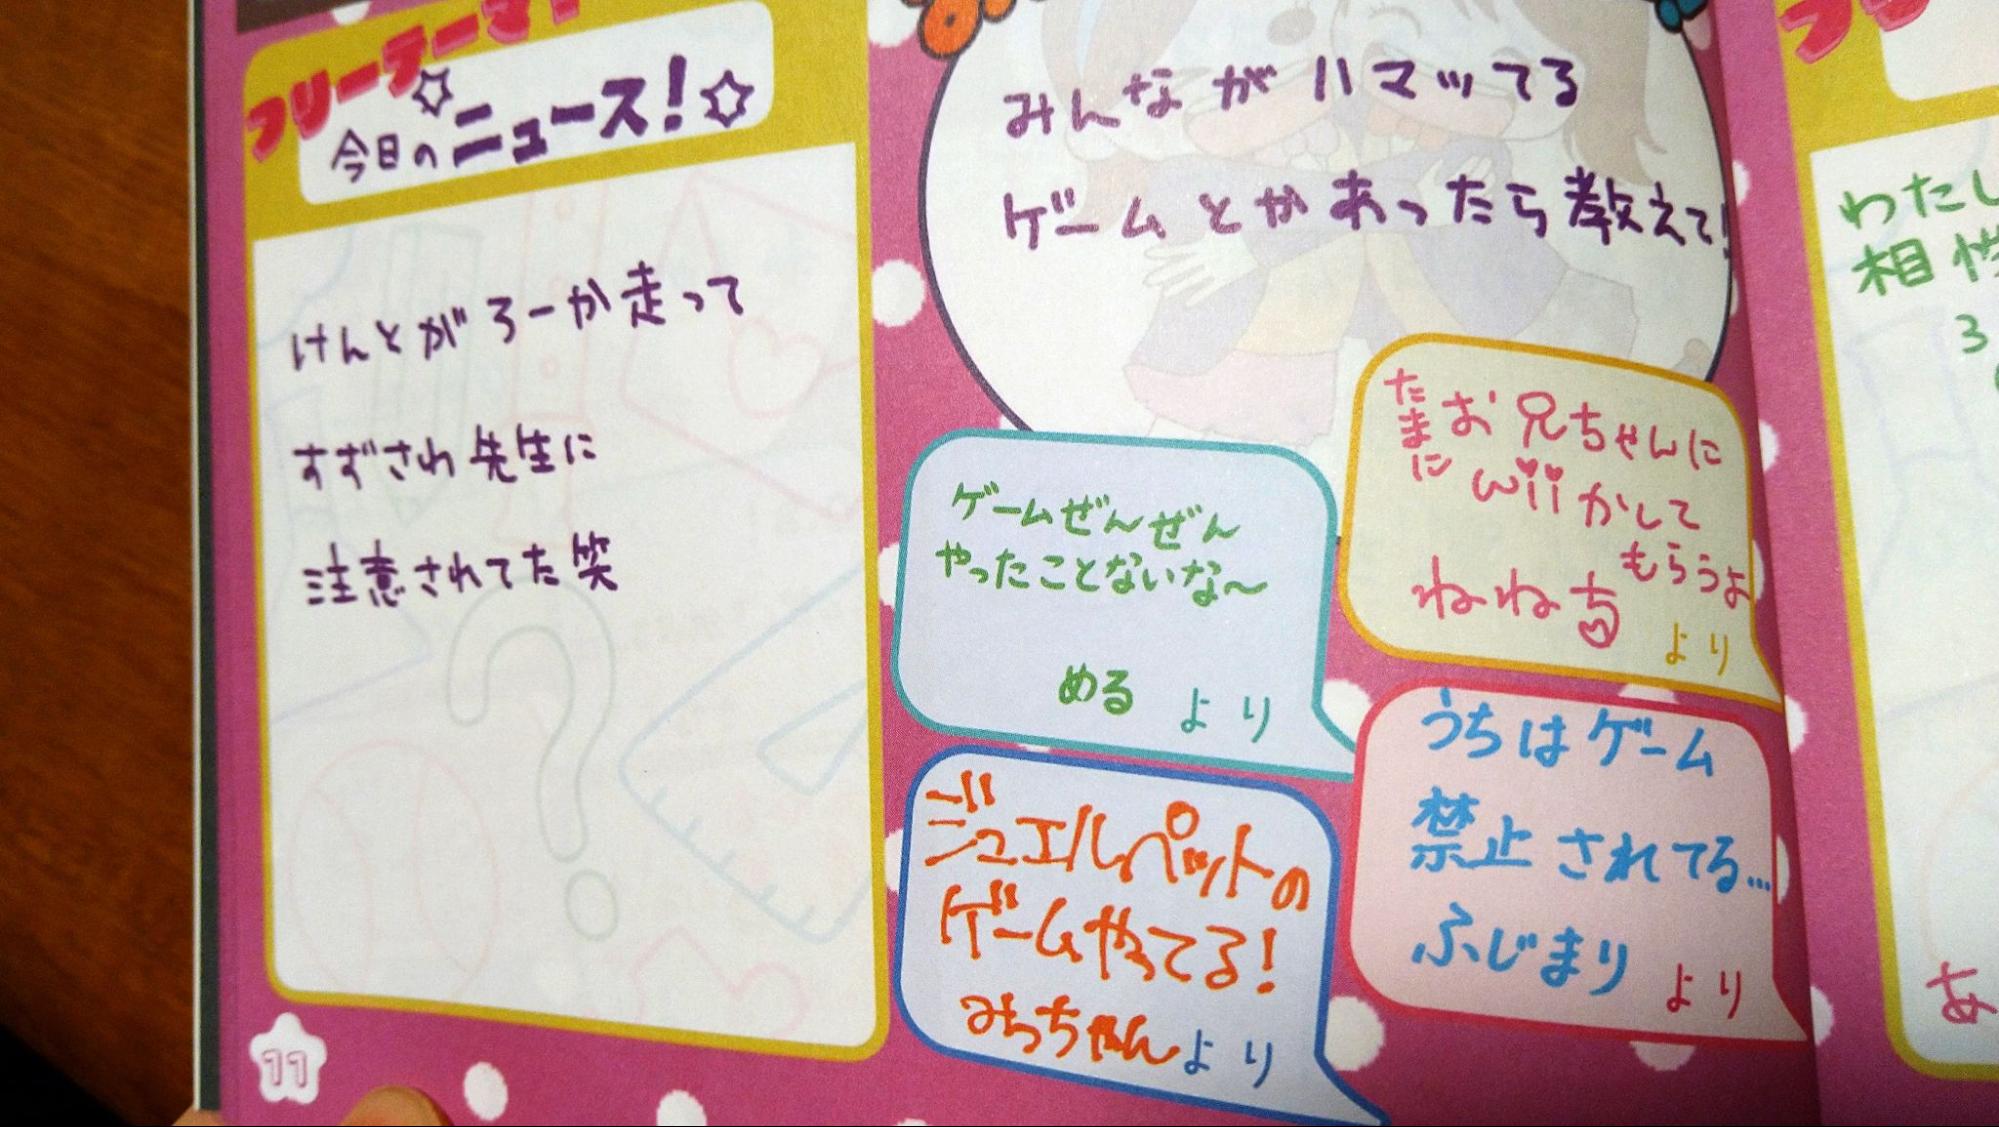 フリーテーマ
今日のニュース!
けんとがろーか走って
すずさわ先生に
注意されてた笑
11
みんながハマッてる
ゲームとかあったら教えて!
ゲームぜんぜん
やったことないな〜
める より
たまに
お兄ちゃんに
wiiかして
もらうよ
ねねち
より
ジュエルペットの
ゲームやってる!
みっちゃんより
うちはゲーム
禁止されてる...
ふじまり より
フリ
わたし
相性
3
あ